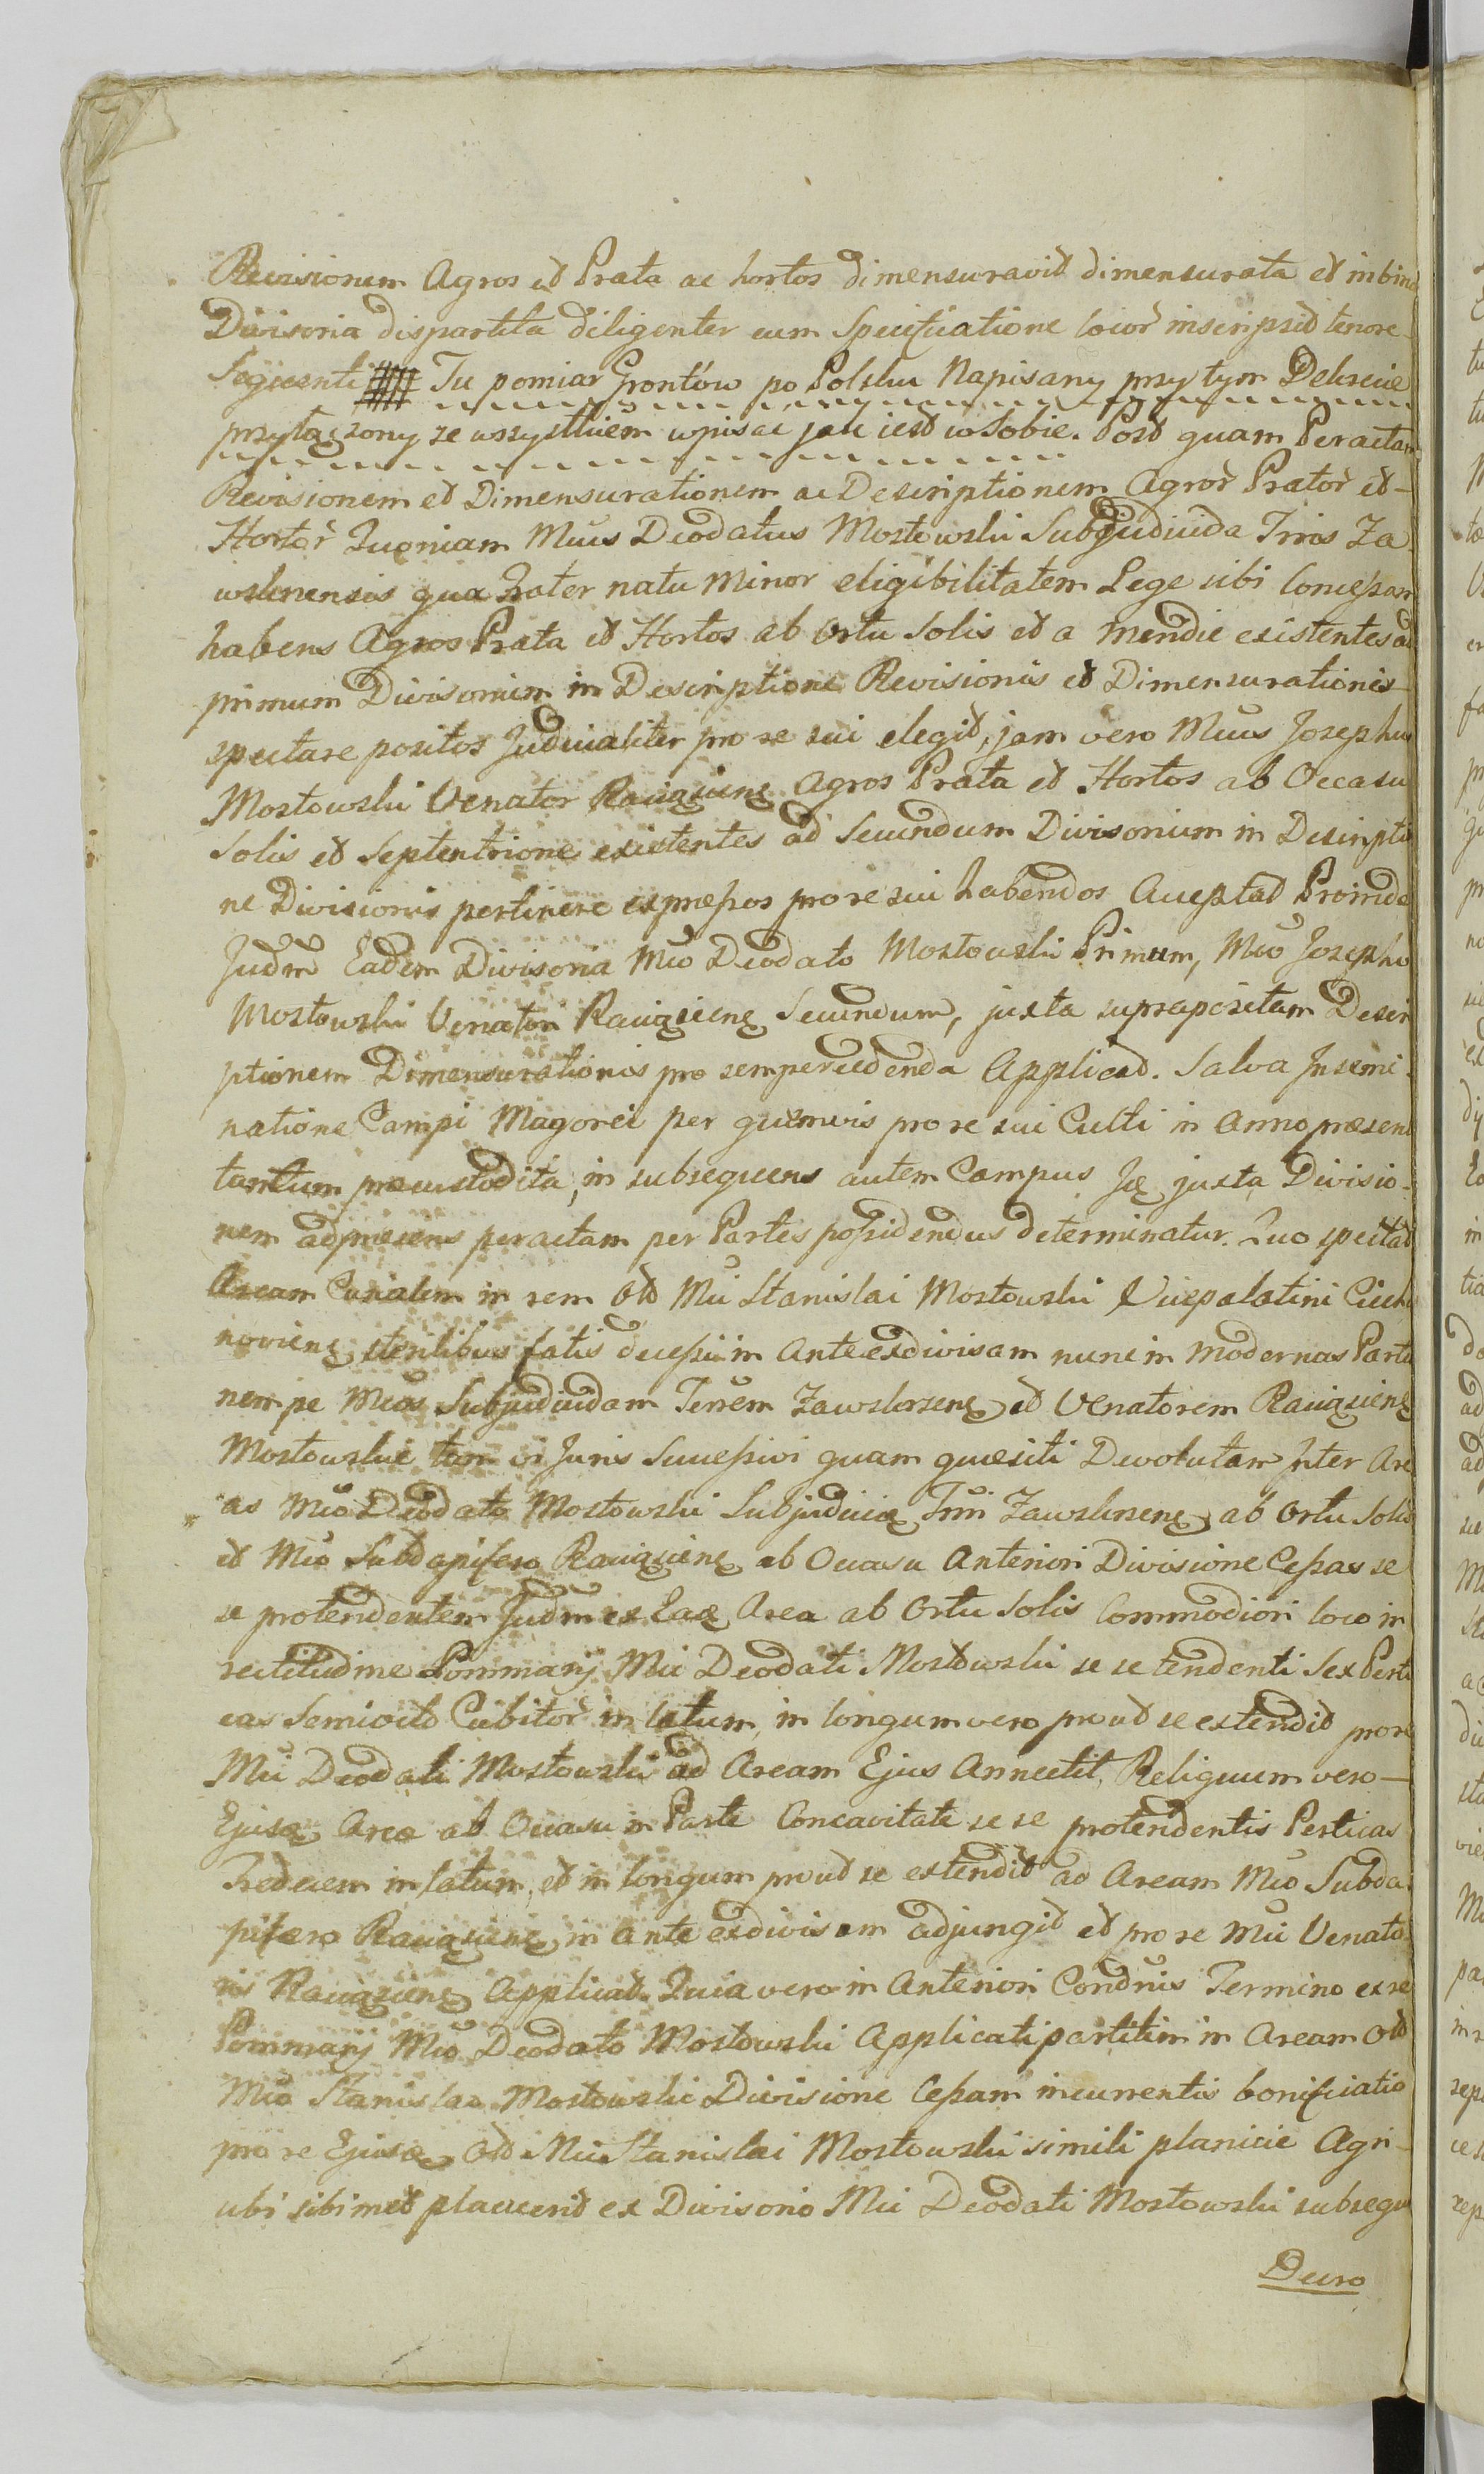 Revisionem Agros et Prata ac hortos dimensuravit dimensurata et in bina
Divisoria dispartita diligenter cum Specificatione locor̃ inscripsit tenore
Sequenti Tu pomiar Grontów po Polsku Napisany przy tym Dekrecie
przyłączony ze wszystkiem wpisac jak iest w Sobie. Post quam Peractam
Revisionem et Dimensurationem ac Descriptionem Agror̃ Prator̃ et –
Hortor̃ Quoniam Mcus Deodatus Mostowski Subjudicida Trrÿs Za
wskrnensis qua Frater natu Minor eligibilitatem Lege sibi Concessam
habens Agros Prata et Hortos ab Ortu Solis et a meridie existentes ad
primum Divisorium in Descriptione Revisionis et Dimensurationis
spectare positos Judicialiter pro se sui elegit, jam vero Mcus Josephus
Mostowski Venator Raciąziens Agros Prata et Hortos ab Occasu
Solis et Septentrione existentes ad Secundum Divisorium in Descriptio
ne Divisionis pertinere expressos pro re sui habendos Acceptat Proinde
Judm̃ Eadem Divisoria Mco Deodato Mostowski Primum, Mco Josepho
Mostowski Venatori Raciąziens Secundum, juxta suprapositam Descri
ptionem Dimensurationis pro semper cedenda Applicat. Salva Insemi
natione Campi Magorei per quemvis pro re sui Culti in Anno præsenti
tantum præcustodita, in subsequens autem Campus juxta Divisio-
nem ad præsens peractam per Partes possidendus determinatur. Quo spectat
Aream Curialem in rem Olt Mci Stanislai Mostowski Vicepalatini Ciecha
noviens sterilibus fatis decessi in Ante exdivisam nunc in modernas Partes
nempe Mcos Subjudicidam Terrem Zawskrzens et Venatorem Raciąziens
Mostowskie tam vi Juris Successivi quam quæsiti Devolutam Inter Are
as Mco Deodato Mostowski Subjudicidæ Trrī Zawskrzens ab Ortu Solis
et Mco Subdapifero Raciąziens ab Occasu Anteriori Divisione Cessas se
se protendentem Judm̃ ex Eadem Area ab Ortu Solis Commodiori loco in
rectitudine Pommarÿ Mci Deodati Mostowski se se tendenti Sex Perti
cas Semiocto Cubitor̃ in latum, in longum vero prout se extendit pro re
Mci Deodati Mostowski ad Aream Ejus Annectit, Reliquum vero –
Ejusdem Areæ ab Occasu in Parte Concavitate se se protendentis Perticas
Tredecem in latum, et in longum prout se extendit ad Aream Mco Subda
pifero Raciąziens in ante exdivisam adjungit et pro re Mci Venato
ris Raciąziens Applicat. Quia vero in Anteriori Condñis Termino ex re
Pommarÿ Mco Deodato Mostowski Applicati partitim in Aream Olt
Mco Stanislao Mostowski Divisione Cessam incurrentis bonificatio
pro re Ejusdem Olt Mci Stanislai Mostowski simili planicie Agri –
ubi sibimet placuerit ex Divisorio Mci Deodati Mostowski subsequi
Decre